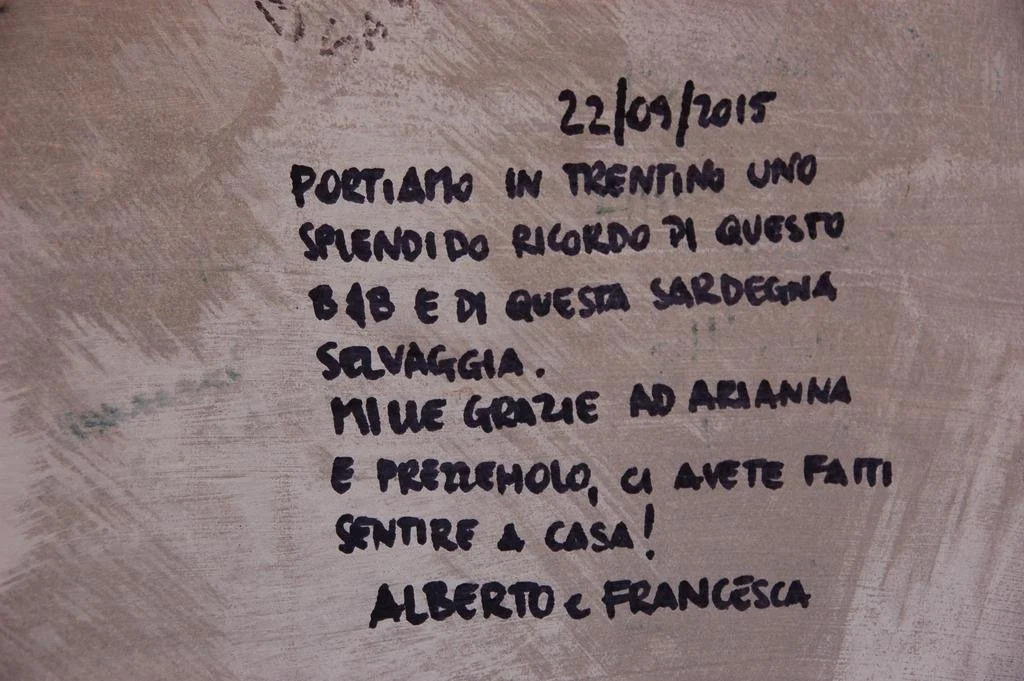 22/09/2015
PORTIAMO IN TRENTINO UNO
SPLENDIDO RICORDO DI QUESTO
B&B E DI QUESTA SARDEGNA
SELVAGGIA.
MILLE GRAZIE AD ARIANNA
E PREZZEMOLO, CI AVETE FATTI
SENTIRE A CASA!
ALBERTO e FRANCESCA